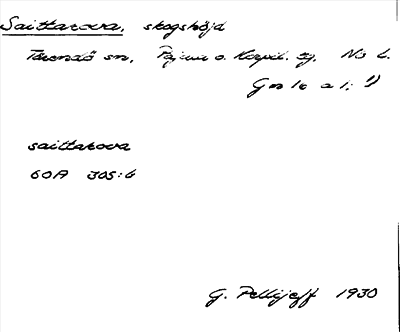 Saittarova, skogshöjd
Tärendö sn, Pajala o. Korpil. tg, Nb l.
Gm 10 a 1; 1)
saittarova
60A 305:6
G. Pellijeff 1930